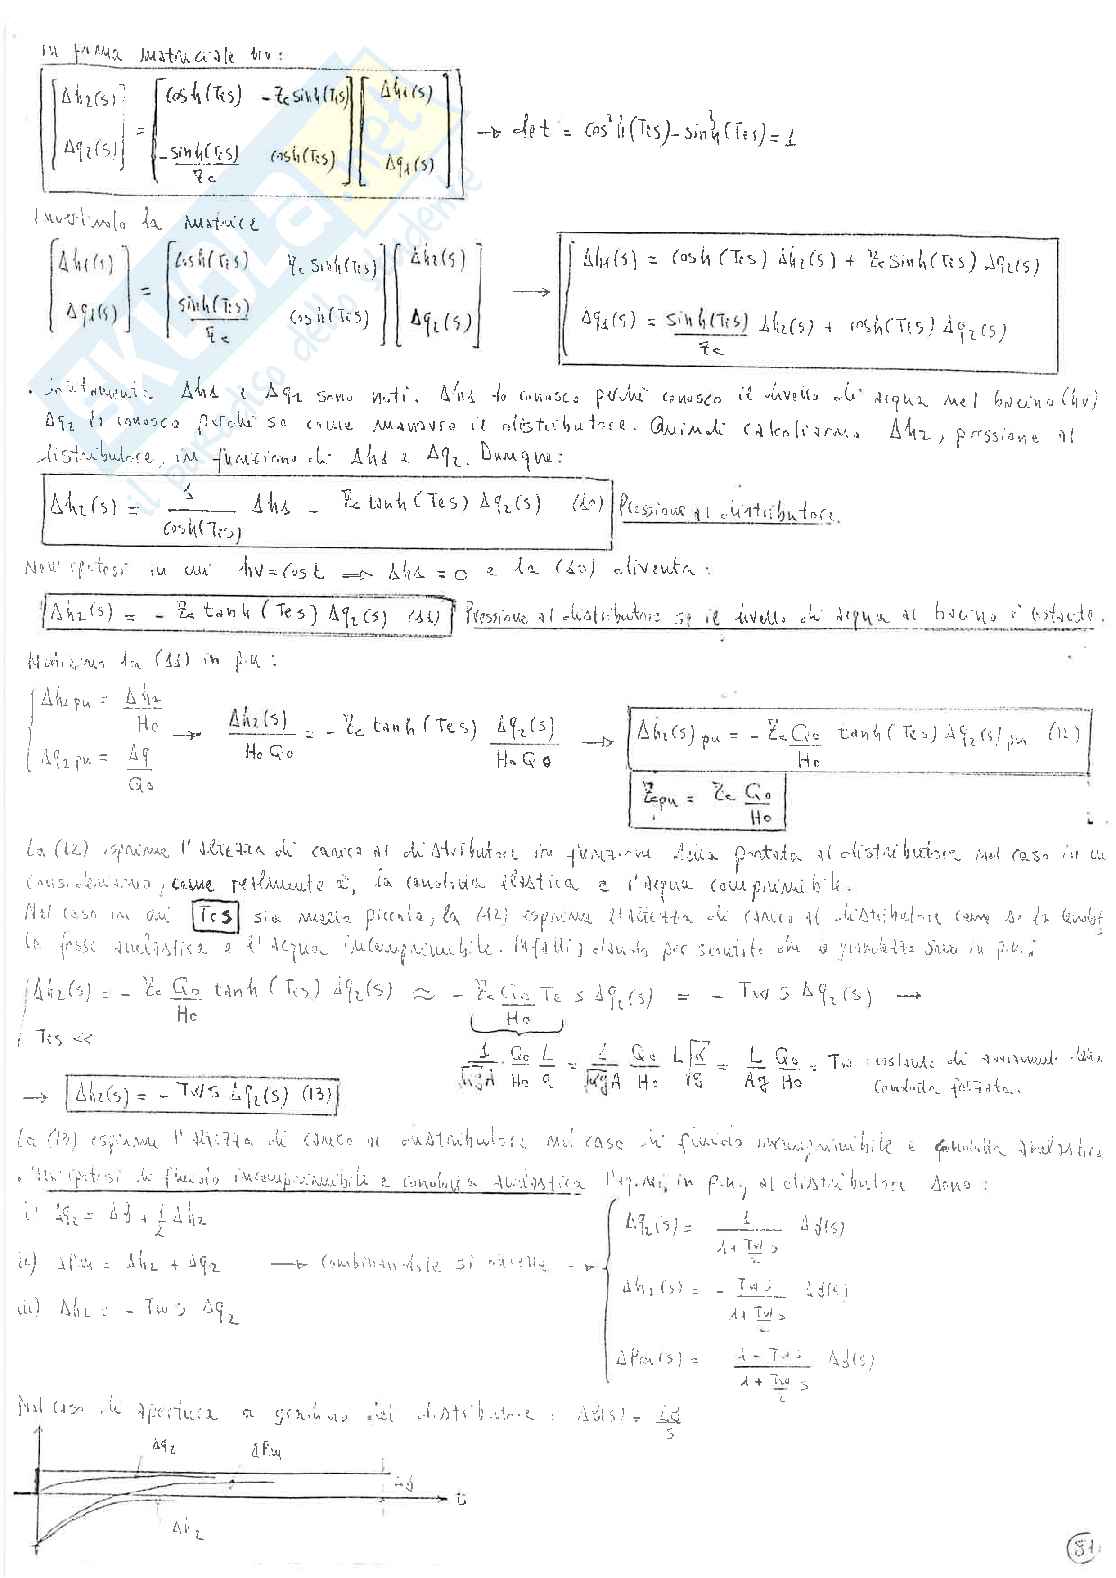 In forma matriciale
[Δh₂(s) ; Δq₂(s)] = [cosh(Tes)  -Zc sinh(Tes) ; -sinh(Tes)/Zc  cosh(Tes)] [Δh1(s) ; Δq1(s)] → det = cos²h(Tes) - sin²h(Tes) = 1
Invertendo la matrice
[Δh1(s) ; Δq1(s)] = [cosh(Tes)  Zc sinh(Tes) ; sinh(Tes)/Zc  cosh(Tes)] [Δh2(s) ; Δq2(s)] → { Δh1(s) = cosh(Tes) Δh2(s) + Zc sinh(Tes) Δq2(s)
Δq1(s) = sinh(Tes)/Zc Δh2(s) + cosh(Tes) Δq2(s)
Δh1 e Δq2 sono noti. Δh1 lo conosco perché conosco il livello di acqua nel bacino (hv)
Δq2 lo conosco perché so come manovro il distributore. Quindi calcoliamo Δh2, pressione al
distributore, in funzione di Δh1 e Δq2. Dunque:
Δh2(s) = 1/cosh(Tes) Δh1 - Zc tanh(Tes) Δq2(s) (10) Pressione al distributore.
Nell'ipotesi in cui hv=cost ⇒ Δh1 = 0 e la (10) diventa:
Δh2(s) = - Zc tanh(Tes) Δq2(s) (11) Pressione al distributore se il livello di acqua al bacino è costante.
la (11) in pu:
{ Δh2pu = Δh2/Ho ; Δq2pu = Δq/Qo → Δh2(s)/HoQo = - Zc tanh(Tes) Δq2(s)/HoQo → Δh2(s)pu = - Zc Qo/Ho tanh(Tes) Δq2(s)pu (12)
Zcpu = Zc Qo/Ho
La (12) esprime l'altezza di carico al distributore in funzione della portata al distributore nel caso in cui
consideriamo, come realmente è, la condotta elastica e l'acqua comprimibile.
Nel caso in cui Tes sia molto piccola, la (12) esprime l'altezza di carico al distributore come se la condotta
fosse anelastica e l'acqua incomprimibile. Infatti, dando per scontato che le grandezze sono in p.u.:
{ Δh2(s) = - Zc Qo/Ho tanh(Tes) Δq2(s) ≈ - Zc Qo/Ho Te s Δq2(s) = - Tw s Δq2(s) →
Tes <<
Qo/Ho L/a = Qo/Ho L = L/Ag Qo/Ho = Tw costante di avviamento della
condotta forzata.
→ Δh2(s) = - Tw s Δq2(s) (13)
La (13) esprime l'altezza di carico al distributore nel caso di fluido incomprimibile e condotta anelastica
Nell'ipotesi di fluido incomprimibile e condotta anelastica le equazioni, in p.u., al distributore sono:
i) Δq2 = Δf + 1/2 Δh2
ii) ΔPm = Δh2 + Δq2 → combinandole si ottiene →
iii) Δh2 = - Tw s Δq2
Δq2(s) = 1/(1+Tw/2 s) Δf(s)
Δh2(s) = - Tw s/(1+Tw/2 s) Δf(s)
ΔPm(s) = (1-Tw s)/(1+Tw/2 s) Δf(s)
Nel caso di apertura a gradino del distributore: Δf(s) = Δf/s
Δq2
ΔPm
Δf
t
Δh2
81